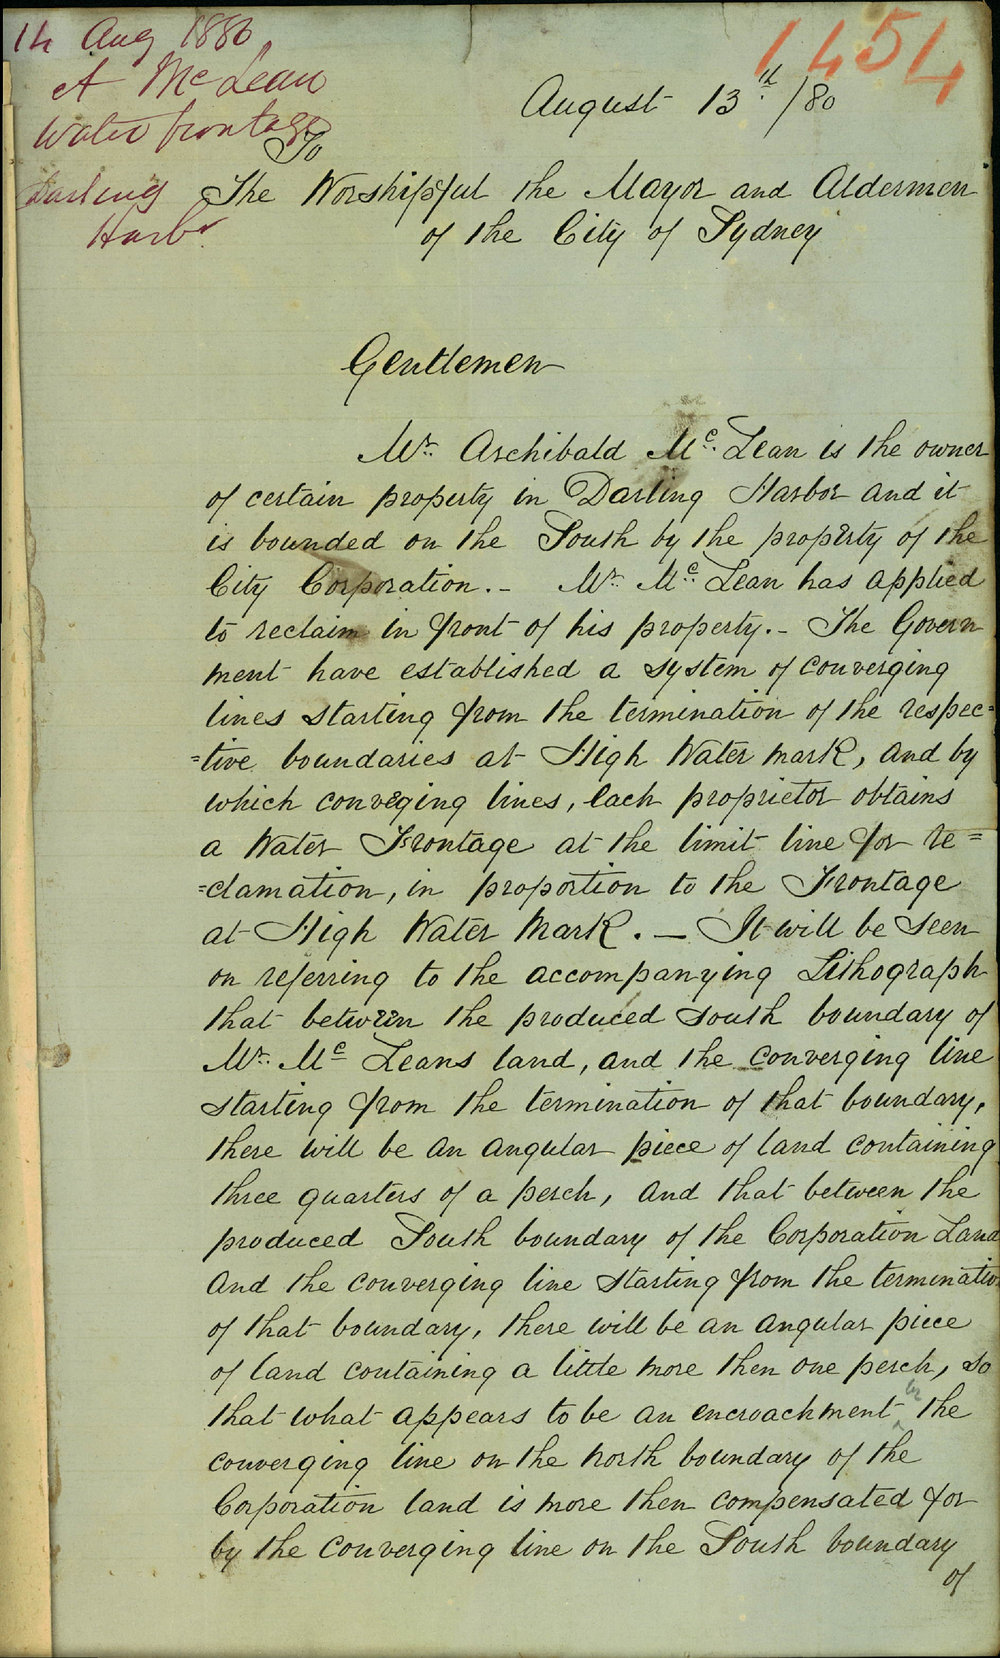 14 Aug 1880
A McLean
Water frontage
Darling
Harbr
1454
August 13th/80
To
The Worshipful the Mayor and Aldermen
of the City of Sydney
Gentlemen
Mr. Archibald Mc. Lean is the owner
of certain property in Darling Harbor and it
is bounded on the South by the property of the
City Corporation.- Mr. Mc. Lean has applied
to reclaim in front of his property.- The Govern
ment have established a system of converging
lines starting from the termination of the respec=
=tive boundaries at High Water mark, and by
which converging lines, each proprietor obtains
a Water Frontage at the limit line for re=
=clamation, in proportion to the Frontage
at High Water Mark. — It will be seen
on referring to the accompanying Lithograph
that between the produced South boundary of
Mr. Mc Leans land, and the converging line
starting from the termination of that boundary,
there will be an angular piece of land containing
three quarters of a perch, and that between the
produced South boundary of the Corporation Land
and the converging line starting from the terminatio
of that boundary, there will be an angular piece
of land containing a little more then one perch, so
that what appears to be an encroachment by the
converging line on the north boundary of the
Corporation land is more then compensated for
by the converging line on the South boundary
of